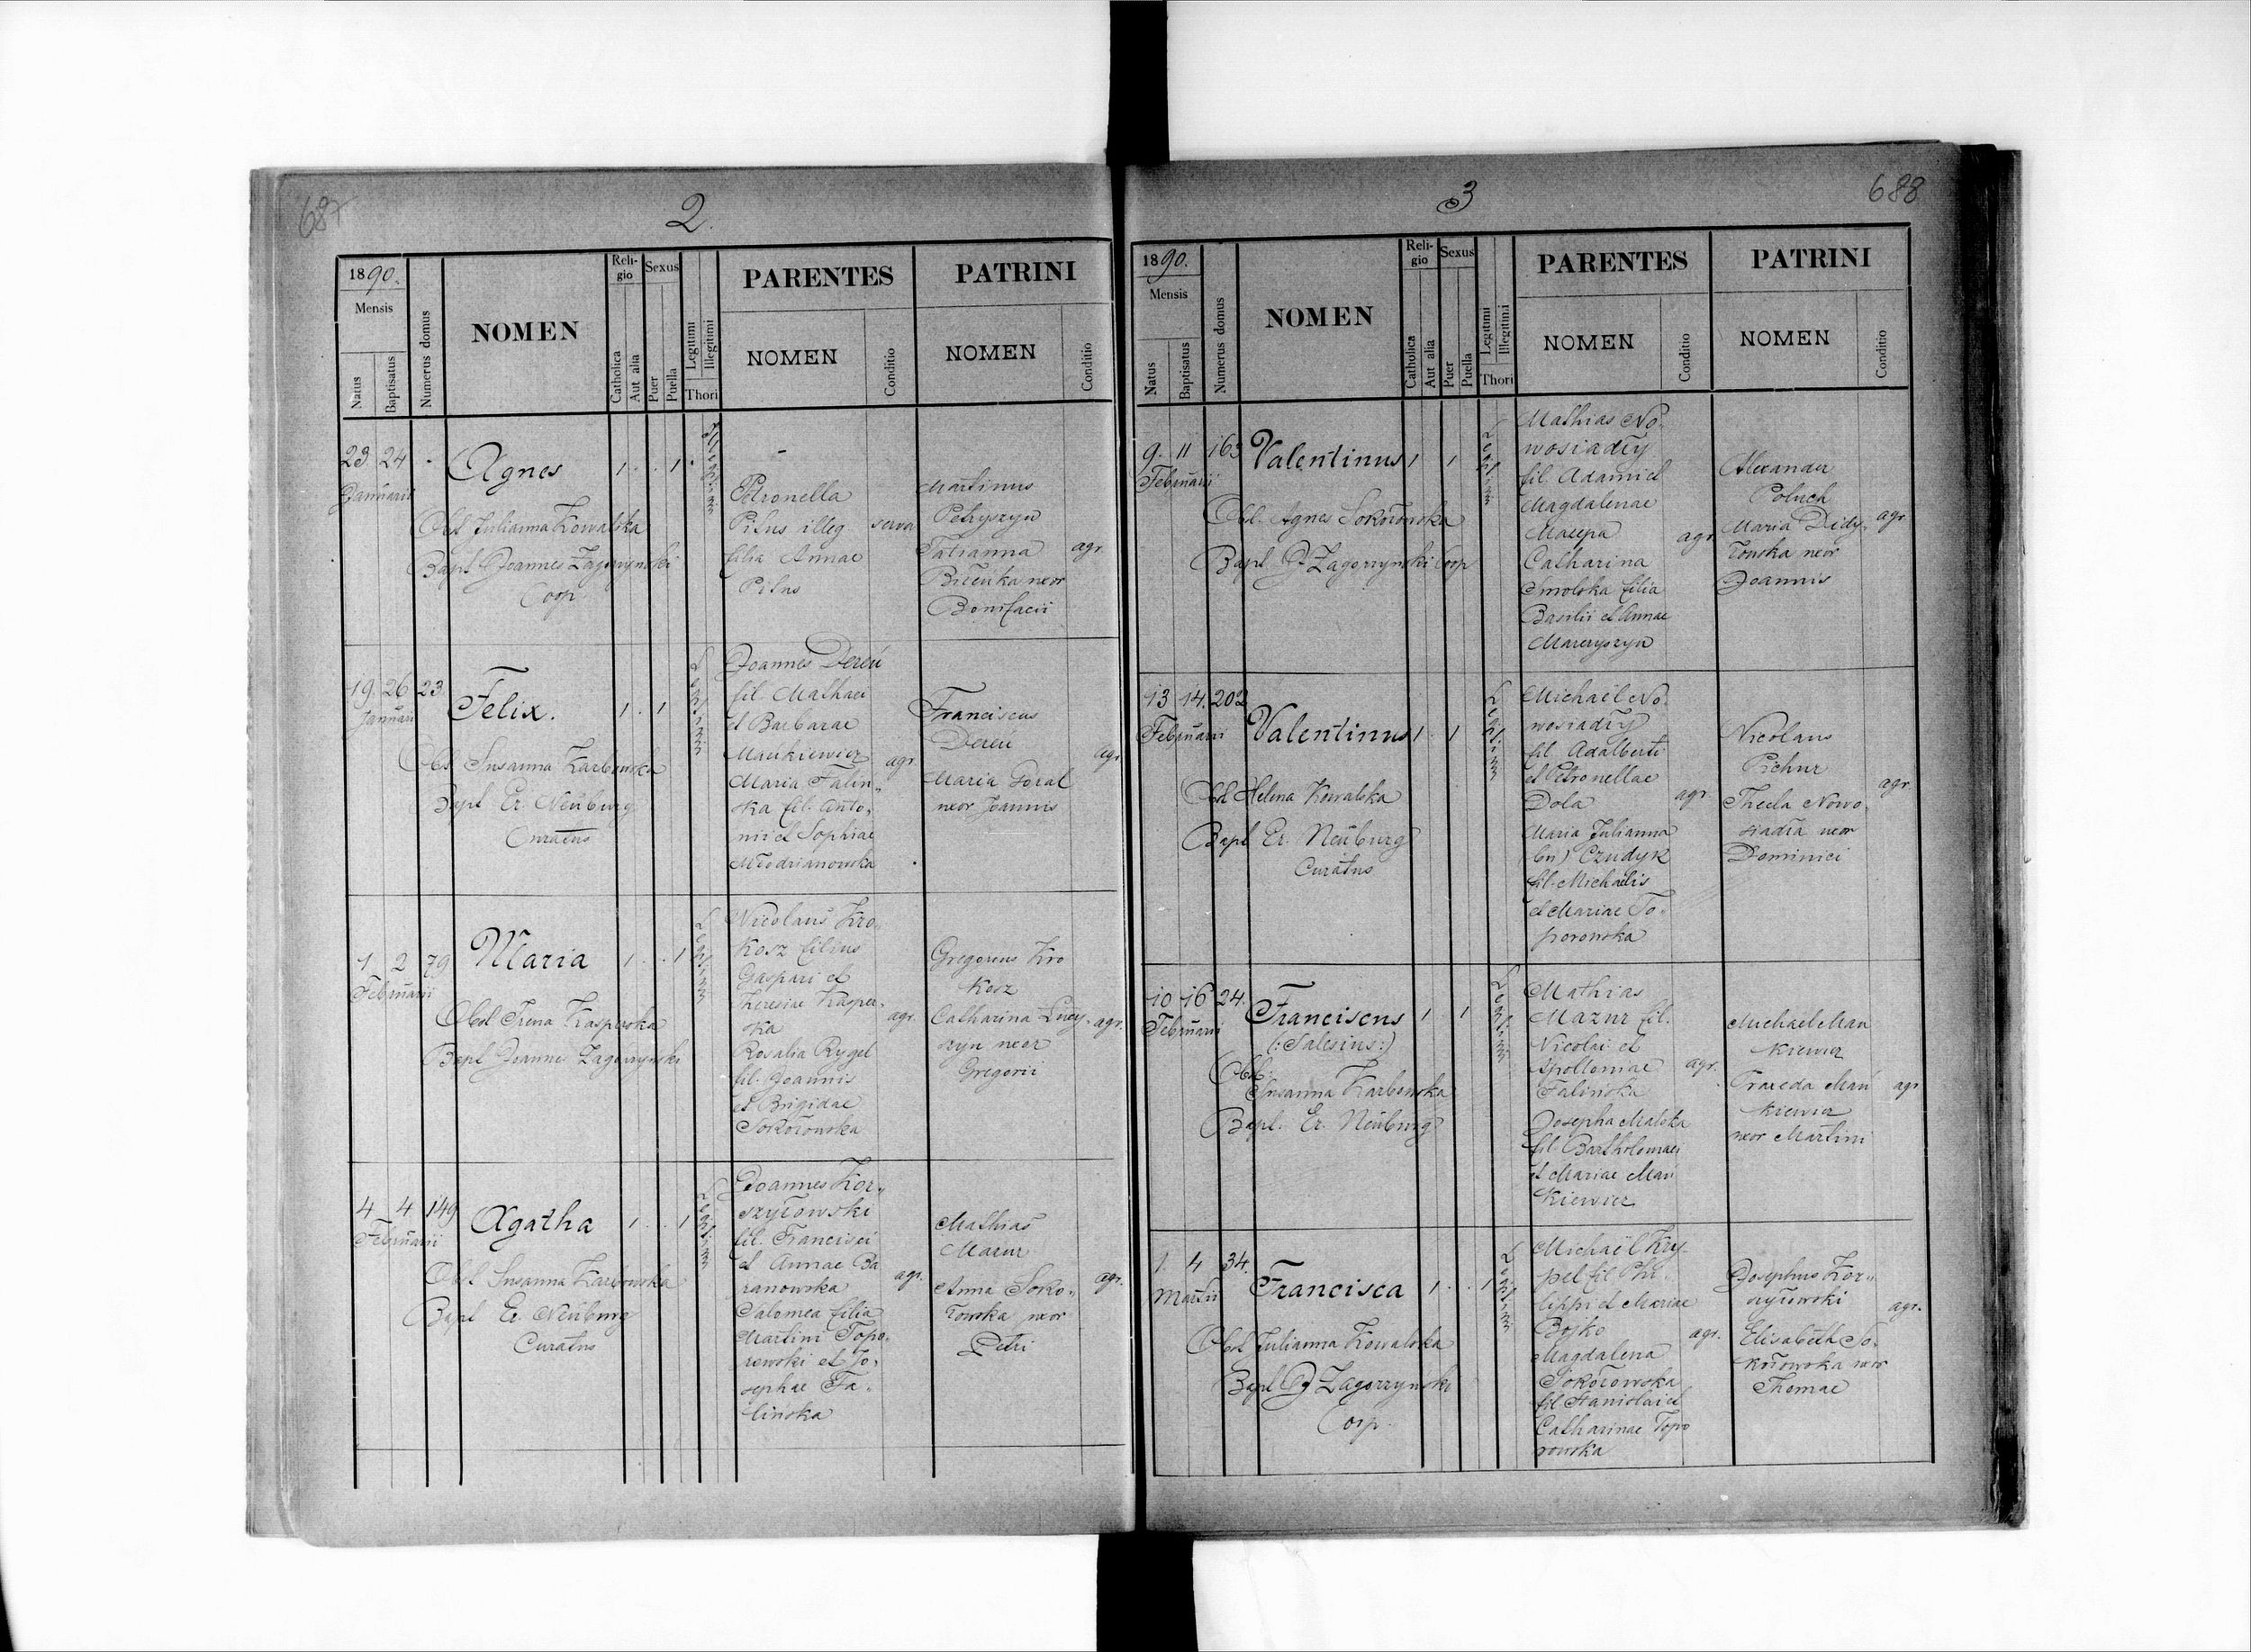 687
2.
1890.
Mensis
Natus
Baptisatus
Numerus domus
NOMEN
Reli-
gio
Catholica
Aut alia
Sexus
Puer
Puella
Legitimi
Illegitimi
Thori
PARENTES
NOMEN
Conditio
PATRINI
NOMEN
Conditio
23 24 - Agnes 1 . . 1
Januarii
Illegitimi
Obst Julianna Kowalska
Bapt Joannes Zagorzynski
Coop
-
Petronella
Pitus illeg.
filia Annae
Pitus
serva
Martinus
Petryszyn
Tatianna
uxor
Bonifacii
agr.
19. 26 23. Felix. 1 . 1
Januari
Legitimi
Obst Susanna Karbowska
Bapt Er. Neüburg
Curatus
Joannes Dereń
fil. Mathaei
et Barbarae
Mankiewicz
Maria Falin„
ska fil. Anto„
nii et Sophiae
Młodzianowska
agr.
Franciscus
Dereń
Maria Goral
uxor Joannis
agr
1 2 79 Maria 1 . . 1
Februarii
Legitimi
Obst Irena Kasperska
Bapt Joannes Zagorzynski
Nicolaus Kro„
kosz filius
Gaspari et
Theresiae Kasper„
ska
Rosalia Rygel
fil. Joannis
et Brigidae
Sokołowska
agr.
Gregorius Kro
kosz
Catharina
szyn uxor
Gregorii
agr.
4 4 149 Agatha 1 . . 1
Februarii
Legitimi
Obst Susanna Karbowska
Bapt Er. Neüburg
Curatus
Joannes Kor„
szyłowski
fil. Francisci
et Annae Ba
ranowska
Salomea filia
Martini Topo„
rowski et Jo„
sephae Fa„
linska
agr.
Mathias
Mazur
Anna Soko„
łowska uxor
Petri
agr.
688
3
1890.
Mensis
Natus
Baptisatus
Numerus domus
NOMEN
Reli-
gio
Catholica
Aut alia
Sexus
Puer
Puella
Legitimi
Illegitimi
Thori
PARENTES
NOMEN
Conditio
PATRINI
NOMEN
Conditio
9. 11 163 Valentinus 1 1
Februarii
Legitimi
Obst. Agnes Sokołowska
Bapt J Zagorzynski Coop
Mathias No„
wosiadły
fil. Adami et
Magdalenae
Mazepa
Catharina
Smolska filia
Basilii et Annae
agr.
Alexander
Poluch
Maria Didy„
łowska uxor
Joannis
agr.
13 14. 202 Valentinus 1 . 1
Februarii
Legitimi
Obst Helena Kowalska
Bapt Er. Neüburg
Curatus
Michaël No„
wosiadły
fil. Adalberti
et Petronellae
Dola
Maria Julianna
(bn) Czudyk
fil. Michaëlis
et Mariae To„
porowska
agr.
Nicolaus
Pichur
Thecla Nowo„
siadła uxor
Dominici
agr.
10 16 24. Franciscus 1 . 1
Februarii (:Salesius:)
Legitimi
Obst.
Susanna Karbowska
Bapt. Er. Neüburg
Mathias
Mazur fil.
Nicolai et
Apolloniae
Falińska
Josepha Malska
fil. Bartholomaei
et Mariae Man
kiewicz
agr.
Michaël Man
kiewicz
Praxeda Mań
kiewicz
uxor Martini
agr
1. 4 34. Francisca 1 . . 1
Martii
Legitimi
Obst Julianna Kowalska
Bapt J Zagorzynski
Coop.
Michaël Kry„
pel fil Phi„
lippi et Mariae
Bojko
Magdalena
Sokołowska
fil. Stanislai et
Catharinae Topo
rowska
agr.
Josephus Kor„
szyłowski
Elisabeth So„
kołowska uxor
Thomae
agr.